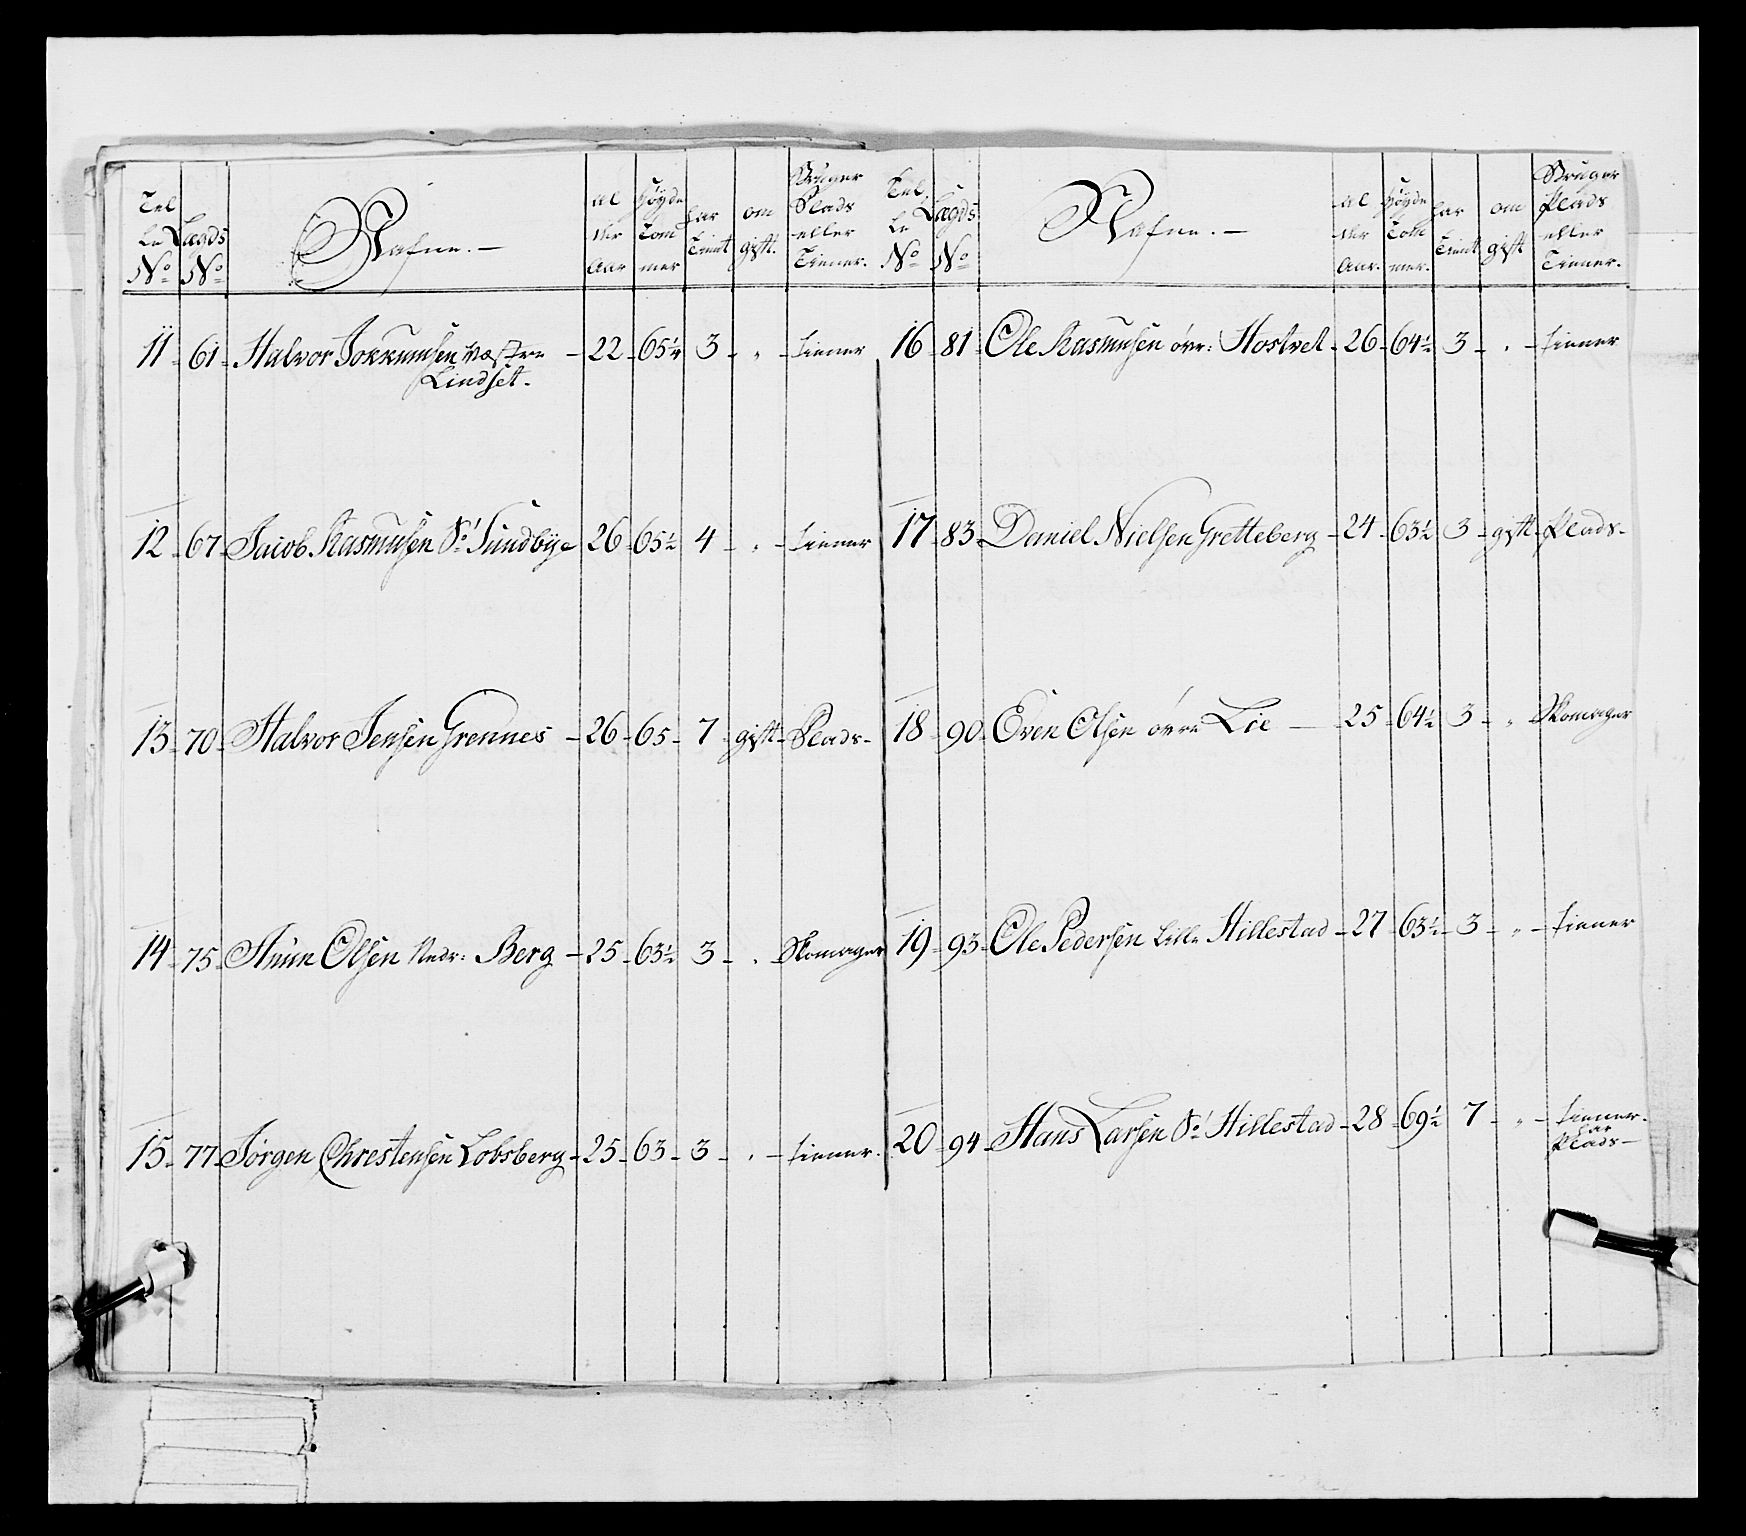 Tel le No | Lægds No | Nafne. | al der Aar | Høyde Tom mer | har Tient | om gift. | Bruger Plads eller Tiener.
11 - 61 - Halvor Jokkumsen Væstre - 22 - 65 1/4 - 3 - " - tiener
Lindset.
12 - 67 - Jacob Rasmusen St: Sundbye 26 - 65 1/2 - 4 - " - tiener
13 - 70 - Halvor Jensen Grennes - 26 - 65 - 7 - gift - Plads -
14 - 75 - Olsen Nedr: Berg - 25 - 63 1/2 - 3 - " - Skomager
15 - 77 - Jørgen Chrestensen Lobsberg - 25 - 63 - 3 - " - tiener.
Tel le No | Lægds No | Nafne. | al der Aar. | Høyde Tom mer. | har Tient | om gift | Bruger Plads eller Tiener.
16 - 81 - Ole Rasmusen øvr: Hostvet - 26 - 64 1/2 - 3 - " - tiener
17 - 83 - Daniel Nielsen Gretteberg - 24 - 63 1/2 - 3 - gift - Plads -
18 - 90 - Even Olsen øvre Lie - 25 - 64 1/2 - 3 - " - Skomager
19 - 93 - Ole Pedersen Lille Hillestad - 27 - 63 1/2 - 3 - " - tiener
20 - 94 - Hans Larsen St: Hillestad - 28 - 69 1/2 - 7 - " - tiener.
har
Plads -